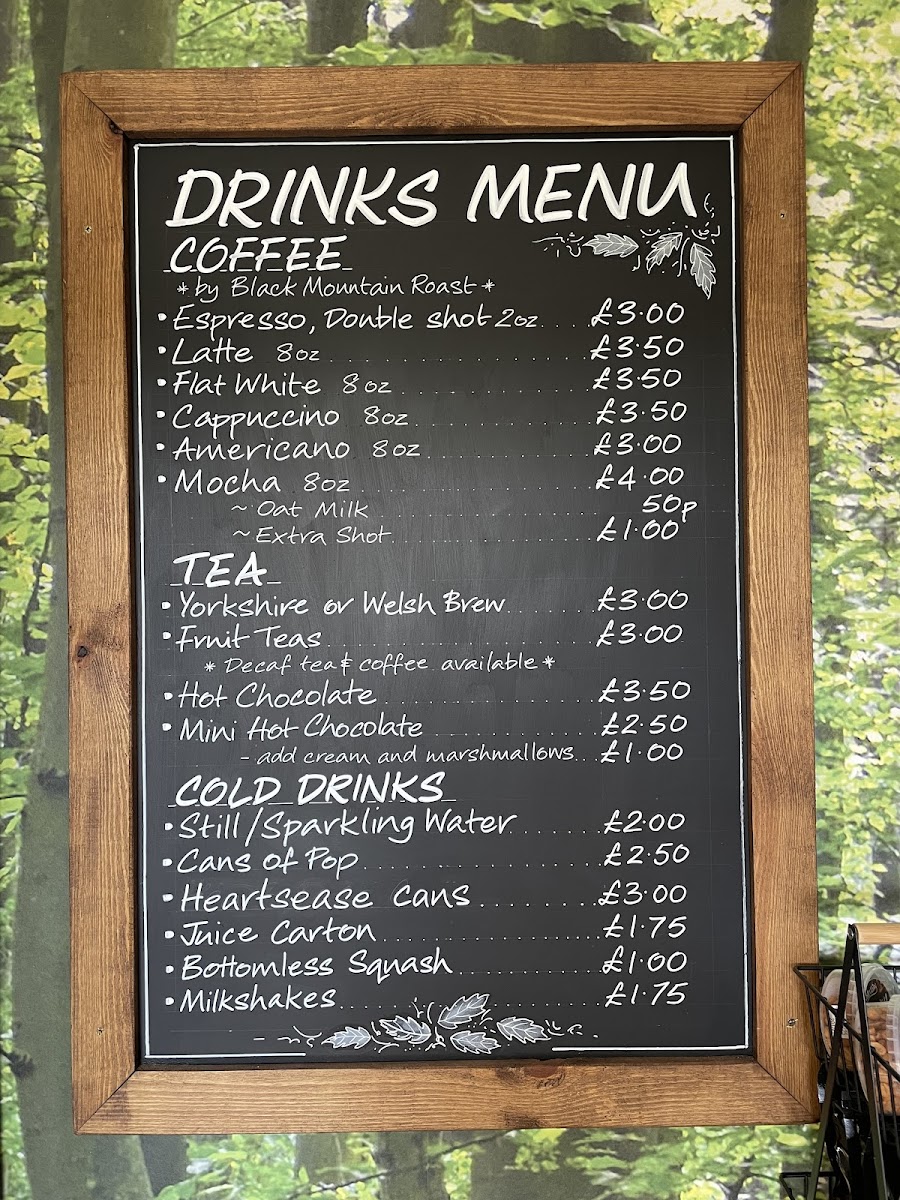 DRINKS MENU
COFFEE
*by Black Mountain Roast*
• Espresso, Double shot 2oz.....£3·00
• Latte 8oz.....£3·50
• Flat White 8oz.....£3·50
• Cappuccino 8oz.....£3·50
• Americano 8oz.....£3·00
• Mocha 8oz.....£4·00
~ Oat Milk.....50p
~ Extra Shot.....£1·00
TEA
• Yorkshire or Welsh Brew.....£3·00
• Fruit Teas.....£3·00
* Decaf tea & coffee available *
• Hot Chocolate.....£3·50
• Mini Hot Chocolate.....£2·50
- add cream and marshmallows...£1·00
COLD DRINKS
• Still/Sparkling Water.....£2·00
• Cans of Pop.....£2·50
• Heartsease Cans.....£3·00
• Juice Carton.....£1·75
• Bottomless Squash.....£1·00
• Milkshakes.....£1·75